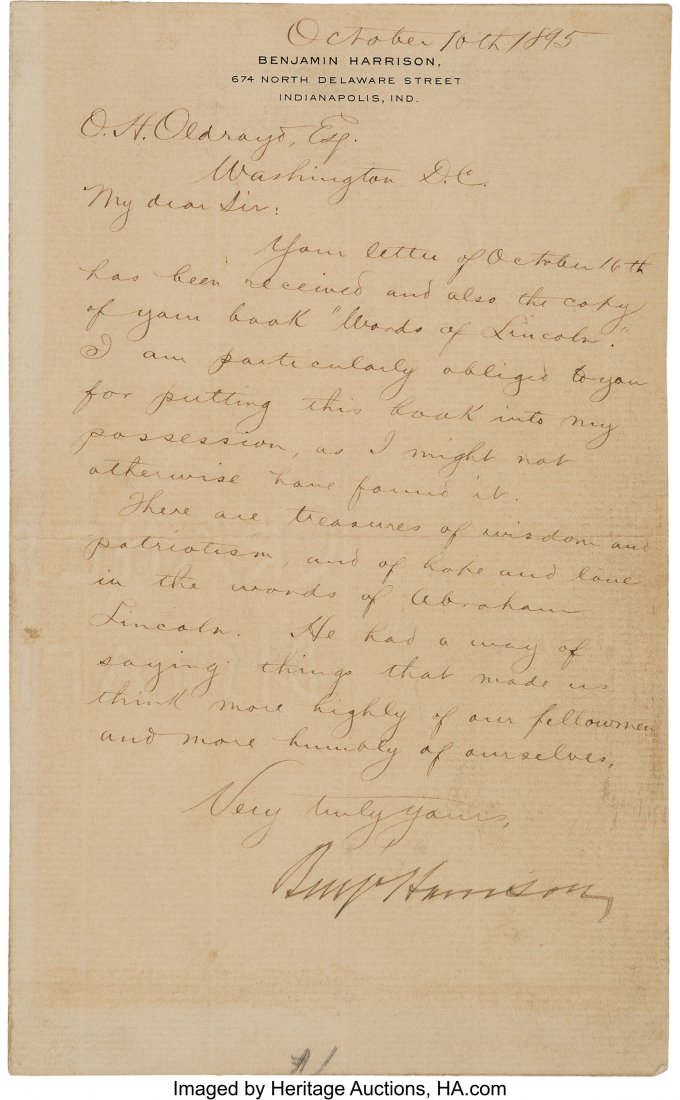 October 10th 1895
BENJAMIN HARRISON,
674 NORTH DELAWARE STREET
INDIANAPOLIS, IND.
O. H. Oldroyd, Esq.
Washington D.C.
My dear Sir:
Your letter of October 16th
has been received and also the copy
of your book "Words of Lincoln."
I am particularly obliged to you
for putting this book into my
possession, as I might not
otherwise have found it.
There are treasures of wisdom and
patriotism, and of hope and love
in the words of Abraham
Lincoln. He had a way of
saying things that made us
think more highly of our fellowmen
and more humbly of ourselves.
Very truly yours,
Benj Harrison
Imaged by Heritage Auctions, HA.com